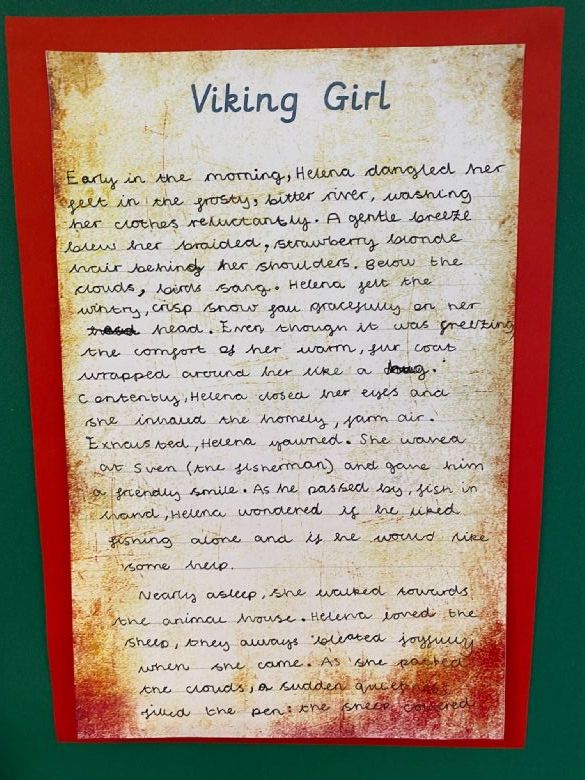 Viking Girl
Early in the morning, Helena dangled her
feet in the frosty, bitter river, washing
her clothes reluctantly. A gentle breeze
blew her braided, strawberry blonde
hair behind her shoulders. Below the
clouds, birds sang. Helena felt the
wintry, crisp snow fall gracefully on her
head. Even though it was freezing
the comfort of her warm, fur coat
wrapped around her like a hug.
Contently, Helena closed her eyes and
she inhaled the homely, farm air.
Exhausted, Helena yawned. She waved
at Sven (the fisherman) and gave him
a friendly smile. As he passed by, fish in
hand, Helena wondered if he liked
fishing alone and if he would like
some help.
Nearly asleep, she walked towards
the animal house. Helena loved the
sheep, they always bleated joyfully
when she came. As she passed
the clouds, a sudden quietness
filled the pen: the sheep cowered